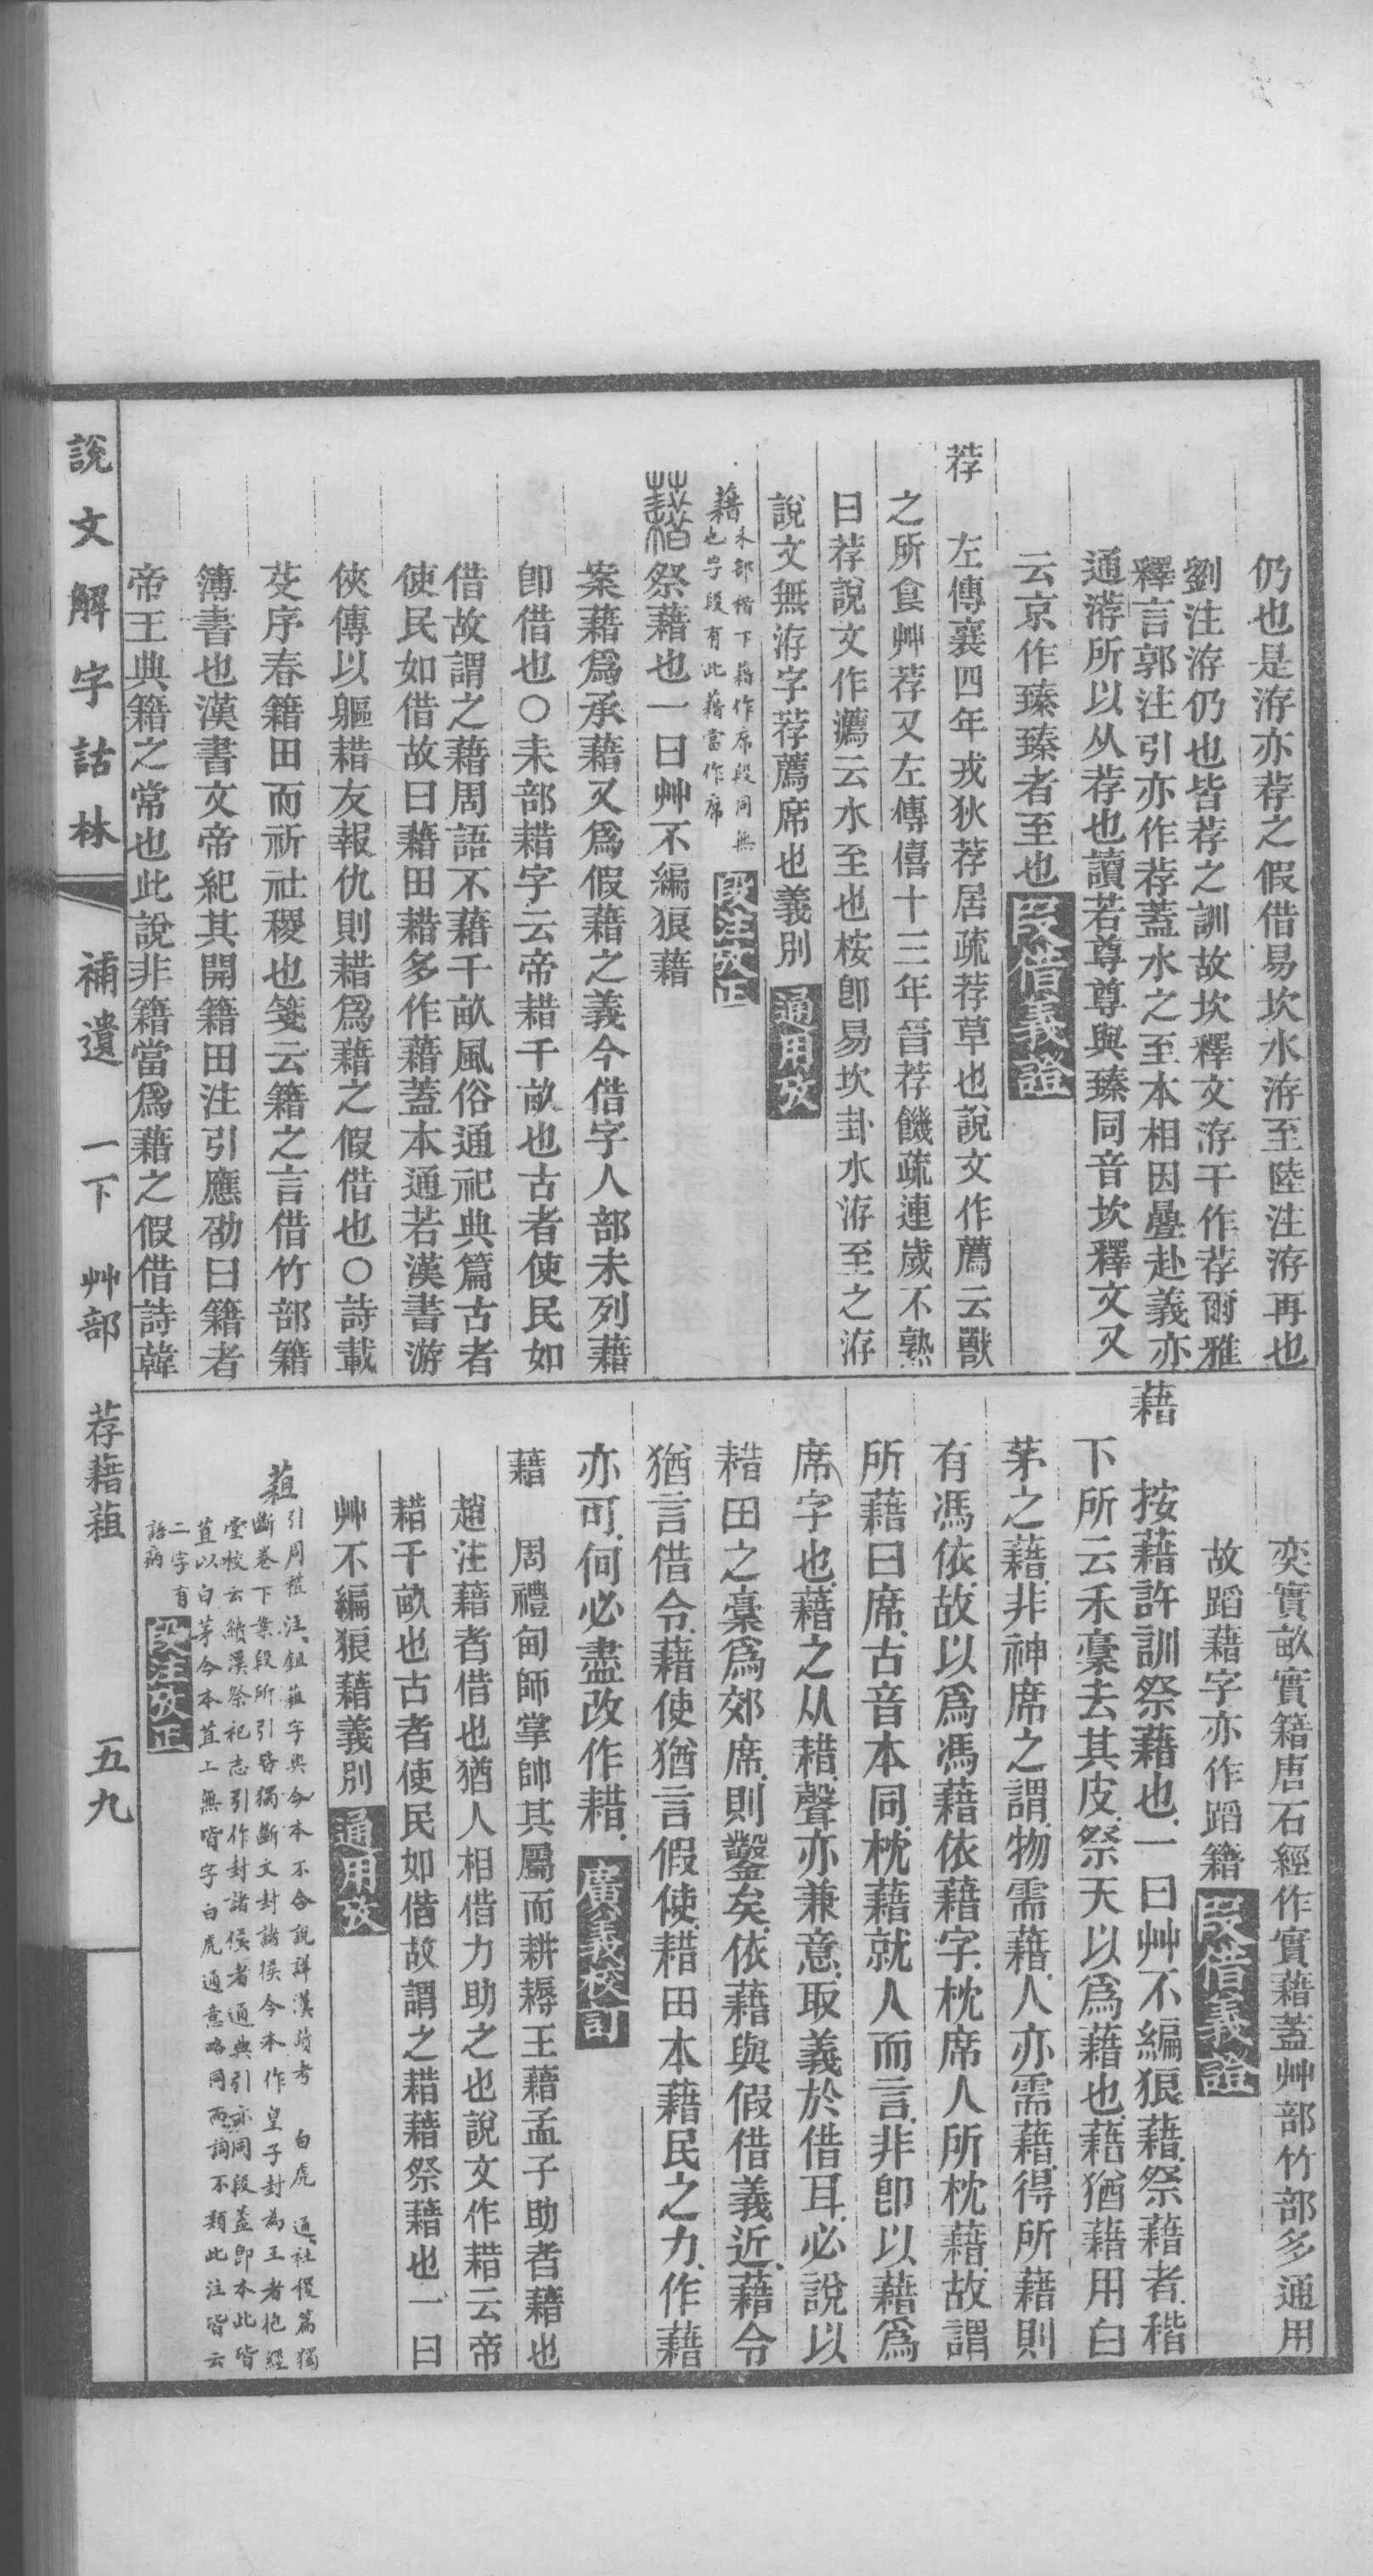 仍也是洊亦荐之假借易坎水洊至陸注洊再也
劉注洊仍也皆荐之訓故坎釋文洊干作荐爾雅
釋言郭注引亦作荐蓋水之至本相因疊赴義亦
通洊所以从荐也讀若尊尊與臻同音坎釋文又
云京作臻臻者至也 叚借義證
荐 左傳襄四年戎狄荐居疏荐草也說文作薦云獸
之所食艸荐又左傳僖十三年晉荐饑疏連歲不熟
曰荐說文作瀳云水至也桉卽易坎卦水洊至之洊
說文無洊字荐薦席也義別 通用攷
藉 禾部稭下藉作席段同無
也字段有此藉當作席 段注攷正
藉 祭藉也一曰艸不編狼藉
案藉爲承藉又爲假藉之義今借字人部未列藉
卽借也○耒部耤字云帝耤千畝也古者使民如
借故謂之藉周語不藉千畝風俗通祀典篇古者
使民如借故曰藉田耤多作藉蓋本通若漢書游
俠傳以軀耤友報仇則耤爲藉之假借也○詩載
芟序春籍田而祈社稷也箋云籍之言借竹部籍
簿書也漢書文帝紀其開籍田注引應劭曰籍者
帝王典籍之常也此說非籍當爲藉之假借詩韓
奕實畝實籍唐石經作實藉蓋艸部竹部多通用
故蹈藉字亦作蹈籍 叚借義證
藉 按藉許訓祭藉也一曰艸不編狼藉祭藉者稭
下所云禾稾去其皮祭天以爲藉也藉猶藉用白
茅之藉非神席之謂物需藉人亦需藉得所藉則
有馮依故以爲馮藉依藉字枕席人所枕藉故謂
所藉曰席古音本同枕藉就人而言非卽以藉爲
席字也藉之从耤聲亦兼意取義於借耳必說以
耤田之稾爲郊席則鑿矣依藉與假借義近藉令
猶言借令藉使猶言假使耤田本藉民之力作藉
亦可何必盡改作耤 廣義校訂
藉 周禮甸師掌帥其屬而耕耨王藉孟子助者藉也
趙注藉者借也猶人相借力助之也說文作耤云帝
耤千畝也古者使民如借故謂之耤藉祭藉也一曰
艸不編狼藉義別 通用攷
蒩 引周禮注鉏蒩字與今本不合說詳漢讀考 白虎通社稷篇獨
斷卷下案段所引皆獨斷文封諸侯今本作皇子封為王者抱經
堂校云續漢祭祀志引作封諸侯者通典引亦同段蓋卽本此皆
苴以白茅今本苴上無皆字白虎通意略同而詞不類此注皆云
二字有
語病 段注攷正
說文解字詁林 補遺 一下 艸部 荐藉蒩 五九